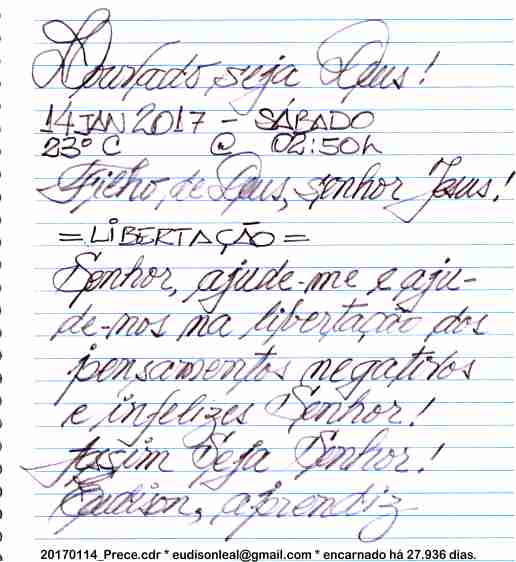 Louvado, seja Deus!
14JAN2017 - SÁBADO
23° C @ 02:50h
Filho, de Deus, senhor Jesus!
=LIBERTAÇÃO=
Senhor, ajude-me e aju-
de-nos na libertação dos
pensamentos negativos
e infelizes Senhor!
Assim Seja Senhor!
Eudison, aprendiz
20170114_Prece.cdr * eudisonleal@gmail.com * encarnado há 27.936 dias.